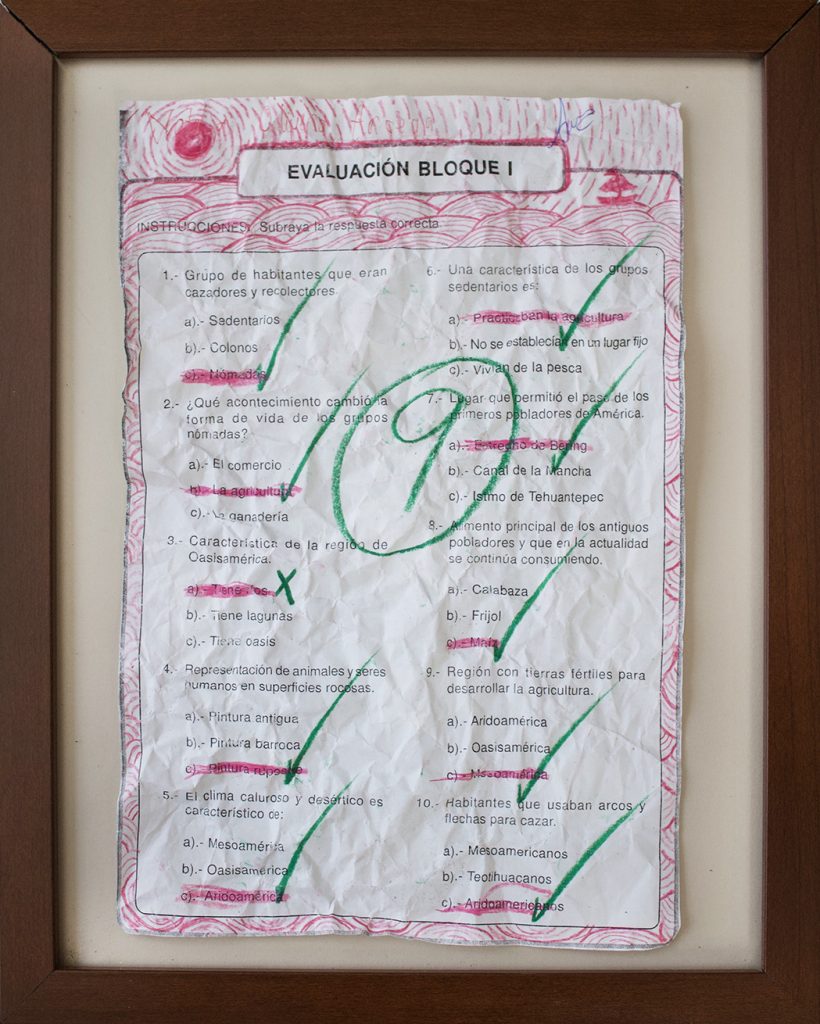 EVALUACIÓN BLOQUE I
INSTRUCCIONES: Subraya la respuesta correcta.
1.- Grupo de habitantes que eran
cazadores y recolectores.
a).- Sedentarios
b).- Colonos
c).- Nómadas
2.- ¿Qué acontecimiento cambió la
forma de vida de los grupos
nómadas?
a).- El comercio
b).- La agricultura
c).- La ganadería
3.- Característica de la región de
Oasisamérica.
a).- Tiene ríos
b).- Tiene lagunas
c).- Tiene oasis
4.- Representación de animales y seres
humanos en superficies rocosas.
a).- Pintura antigua
b).- Pintura barroca
c).- Pintura rupestre
5.- El clima caluroso y desértico es
característico de:
a).- Mesoamérica
b).- Oasisamérica
c).- Aridoamérica
6.- Una característica de los grupos
sedentarios es:
a).- Practicaban la agricultura
b).- No se establecían en un lugar fijo
c).- Vivían de la pesca
7.- Lugar que permitió el paso de los
primeros pobladores de América.
a).- Estrecho de Bering
b).- Canal de la Mancha
c).- Istmo de Tehuantepec
8.- Alimento principal de los antiguos
pobladores y que en la actualidad
se continúa consumiendo.
a).- Calabaza
b).- Frijol
c).- Maíz
9.- Región con tierras fértiles para
desarrollar la agricultura.
a).- Aridoamérica
b).- Oasisamérica
c).- Mesoamérica
10.- Habitantes que usaban arcos y
flechas para cazar.
a).- Mesoamericanos
b).- Teotihuacanos
c).- Aridoamericanos
9